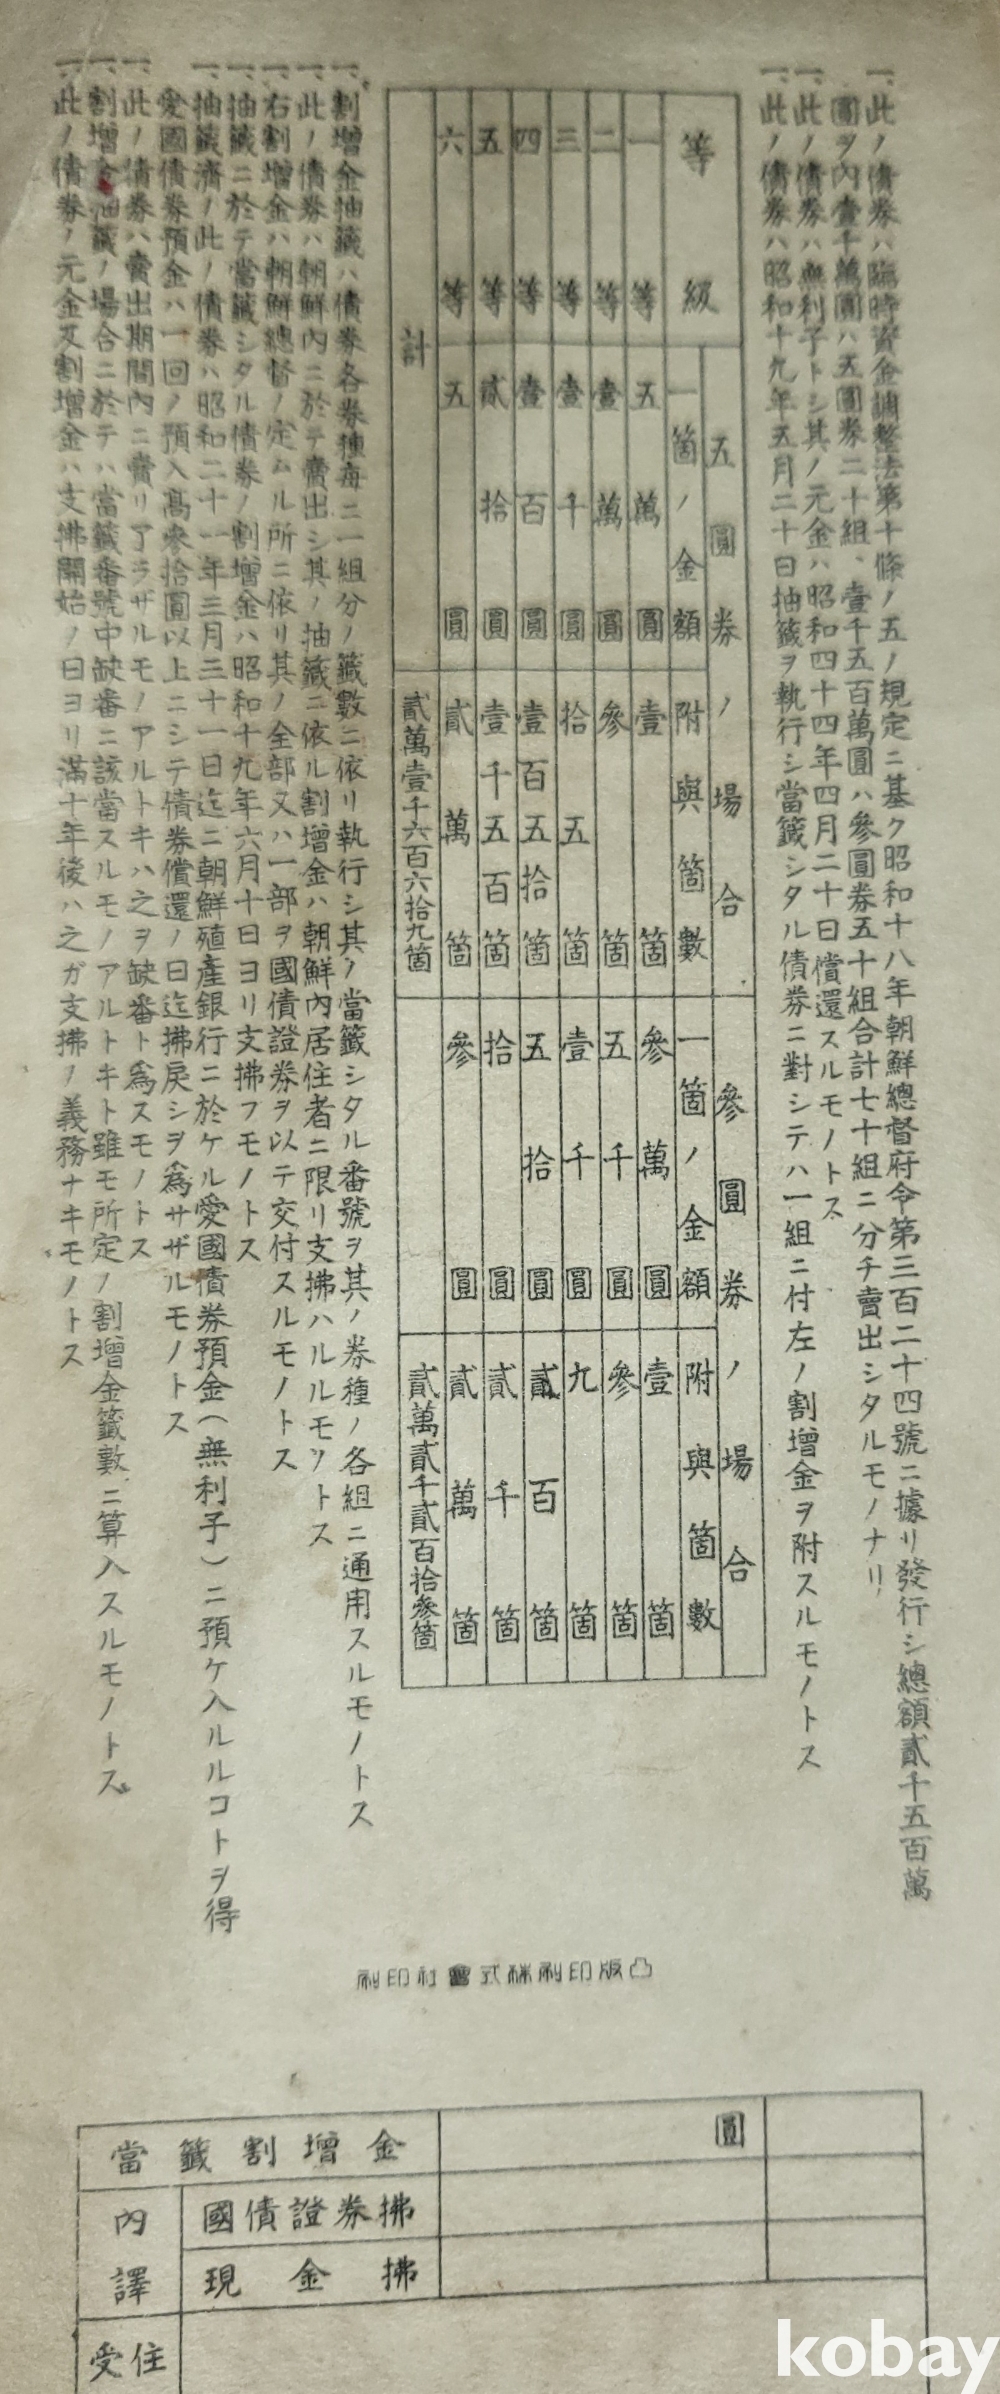 一、此ノ債券ハ臨時資金調整法第十條ノ五ノ規定ニ基ク昭和十八年朝鮮總督府令第三百二十四號ニ據リ發行シ總額貳千五百萬
圓ヲ內壹千萬圓ハ五圓券二十組、壹千五百萬圓ハ參圓券五十組合計七十組ニ分チ賣出シタルモノナリ
一、此ノ債券ハ無利子トシ其ノ元金ハ昭和四十四年四月二十日償還スルモノトス
一、此ノ債券ハ昭和十九年五月二十日抽籤ヲ執行シ當籤シタル債券ニ對シテハ一組ニ付左ノ割增金ヲ附スルモノトス
等級 五圓券ノ場合 參圓券ノ場合
一箇ノ金額 附與箇數 一箇ノ金額 附與箇數
一等 五萬圓 壹箇 參萬圓 壹箇
二等 壹萬圓 參箇 五千圓 參箇
三等 壹千圓 拾五箇 壹千圓 九箇
四等 壹百圓 壹百五拾箇 五拾圓 貳百箇
五等 貳拾圓 壹千五百箇 拾圓 貳千箇
六等 五圓 貳萬箇 參圓 貳萬箇
計 貳萬壹千六百六拾九箇 貳萬貳千貳百拾參箇
一、割增金抽籤ハ債券各券種每ニ一組分ノ籤數ニ依リ執行シ其ノ當籤シタル番號ヲ其ノ券種ノ各組ニ通用スルモノトス
一、此ノ債券ハ朝鮮內ニ於テ賣出シ其ノ抽籤ニ依ル割增金ハ朝鮮內居住者ニ限リ支拂ハルルモノトス
一、右割增金ハ朝鮮總督ノ定ムル所ニ依リ其ノ全部又ハ一部ヲ國債證券ヲ以テ交付スルモノトス
一、抽籤ニ於テ當籤シタル債券ノ割增金ハ昭和十九年六月十日ヨリ支拂フモノトス
一、抽籤濟ノ此ノ債券ハ昭和二十一年三月三十一日迄ニ朝鮮殖產銀行ニ於ケル愛國債券預金(無利子)ニ預ケ入ルルコトヲ得
愛國債券預金ハ一回ノ預入高參拾圓以上ニシテ債券償還ノ日迄拂戾シヲ爲サザルモノトス
一、此ノ債券ハ賣出期間內ニ賣リ了ラザルモノアルトキハ之ヲ缺番ト爲スモノトス
一、割增金抽籤ノ場合ニ於テハ當籤番號中缺番ニ該當スルモノアルトキト雖モ所定ノ割增金籤數ニ算入スルモノトス
一、此ノ債券ノ元金及割增金ハ支拂開始ノ日ヨリ滿十年後ハ之ガ支拂ノ義務ナキモノトス
凸版印刷株式會社印刷
當籤割增金 圓
內譯 國債證券拂
現金拂
受住
kobay